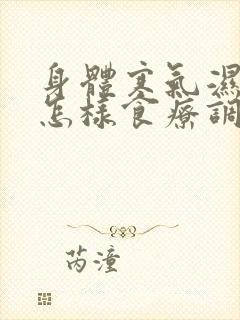 身體寒氣濕
怎樣食療調
芮潼